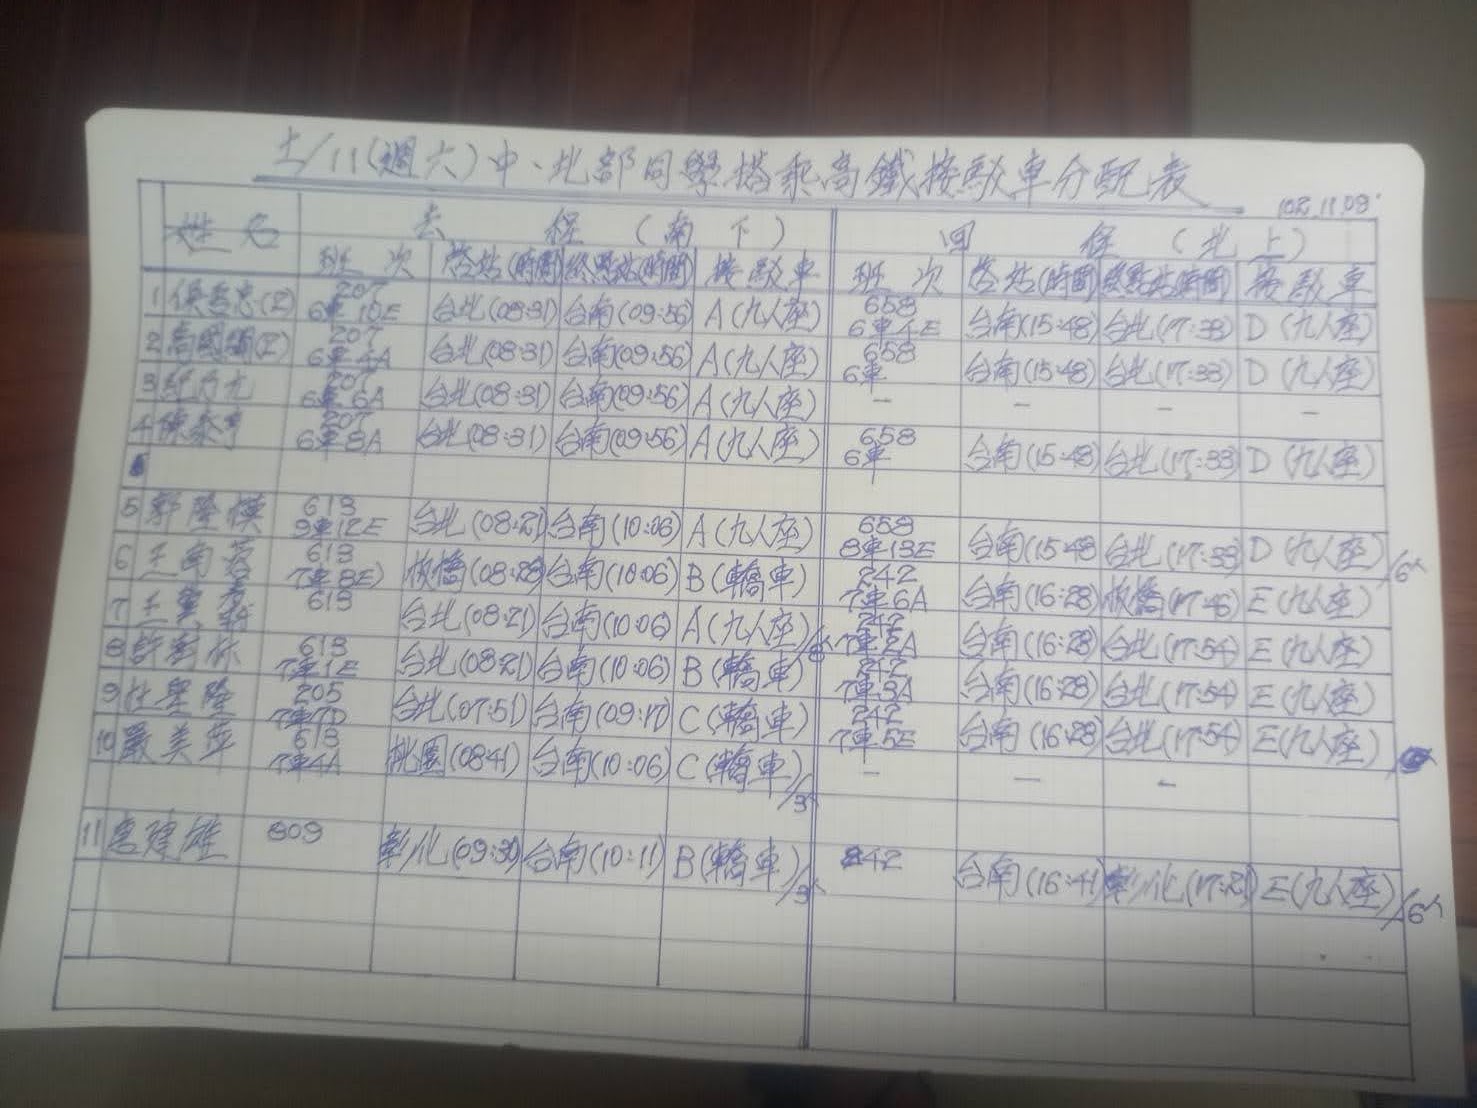 11(週六)中、北部同學搭乘高鐵接駁車分配表
102.11.09
姓名 去程(南下) 回程(北上)
班次 啓站(時間) 終點站(時間) 接駁車 班次 啓站(時間) 終點站(時間) 接駁車
1 (2) 207 6車10E 台北(08:31) 台南(09:56) A(九人座) 658 6車4E 台南(15:48) 台北(17:33) D(九人座)
2 (2) 207 6車4A 台北(08:31) 台南(09:56) A(九人座) 658 6車 台南(15:48) 台北(17:33) D(九人座)
3 207 6車6A 台北(08:31) 台南(09:56) A(九人座) — — — —
4 207 6車8A 台北(08:31) 台南(09:56) A(九人座) 658 6車 台南(15:48) 台北(17:33) D(九人座)
5 郭隆模 613 9車12E 台北(08:21) 台南(10:06) A(九人座) 658 8車13E 台南(15:48 台北(17:33) D(九人座) /6人
6 613 7車8E) 板橋(08:28) 台南(10:06) B(轎車) 242 7車6A 台南(16:28) 板橋(17:46) E(九人座)
7 613 台北(08:21) 台南(10:06) A(九人座) 242 7車2A 台南(16:28) 台北(17:54) E(九人座)
8 613 7車1E 台北(08:21) 台南(10:06) B(轎車) 242 7車3A 台南(16:28) 台北(17:54) E(九人座)
9 杜 隆 205 台北(07:51) 台南(09:17) C(轎車) 242 7車5E 台南(16:28) 台北(17:54) E(九人座)
10 嚴美 613 7車4A 桃園(0841) 台南(10:06) C(轎車) /3人 — — —
11 建雄 809 彰化(09:30) 台南(10:11) B(轎車) /3人 842 台南(16:41) 彰化(17:21) E(九人座) /6人